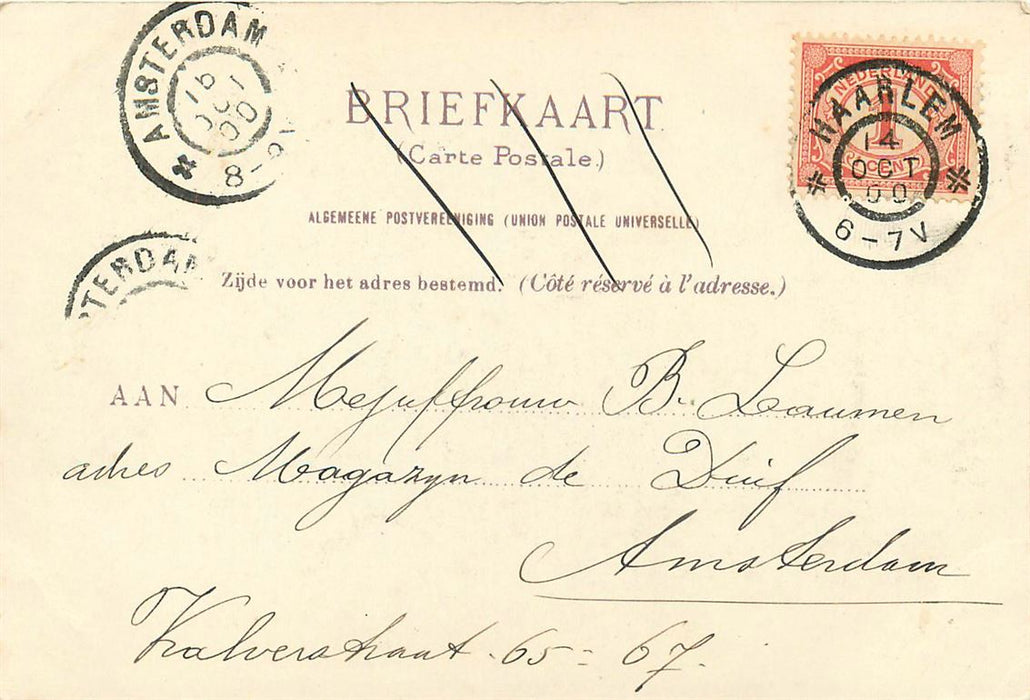 AMSTERDAM
16
OCT
00
8-9V
NEDERLAND
1
CENT
HAARLEM
14
OCT
00
6-7V
BRIEFKAART
(Carte Postale.)
ALGEMEENE POSTVEREENIGING (UNION POSTALE UNIVERSELLE)
TERDAM
Zijde voor het adres bestemd. (Côté réservé à l'adresse.)
AAN Mejuffrouw B. Laumen
adres Magazyn de Duif
Amsterdam
Kalverstraat. 65 = 67.